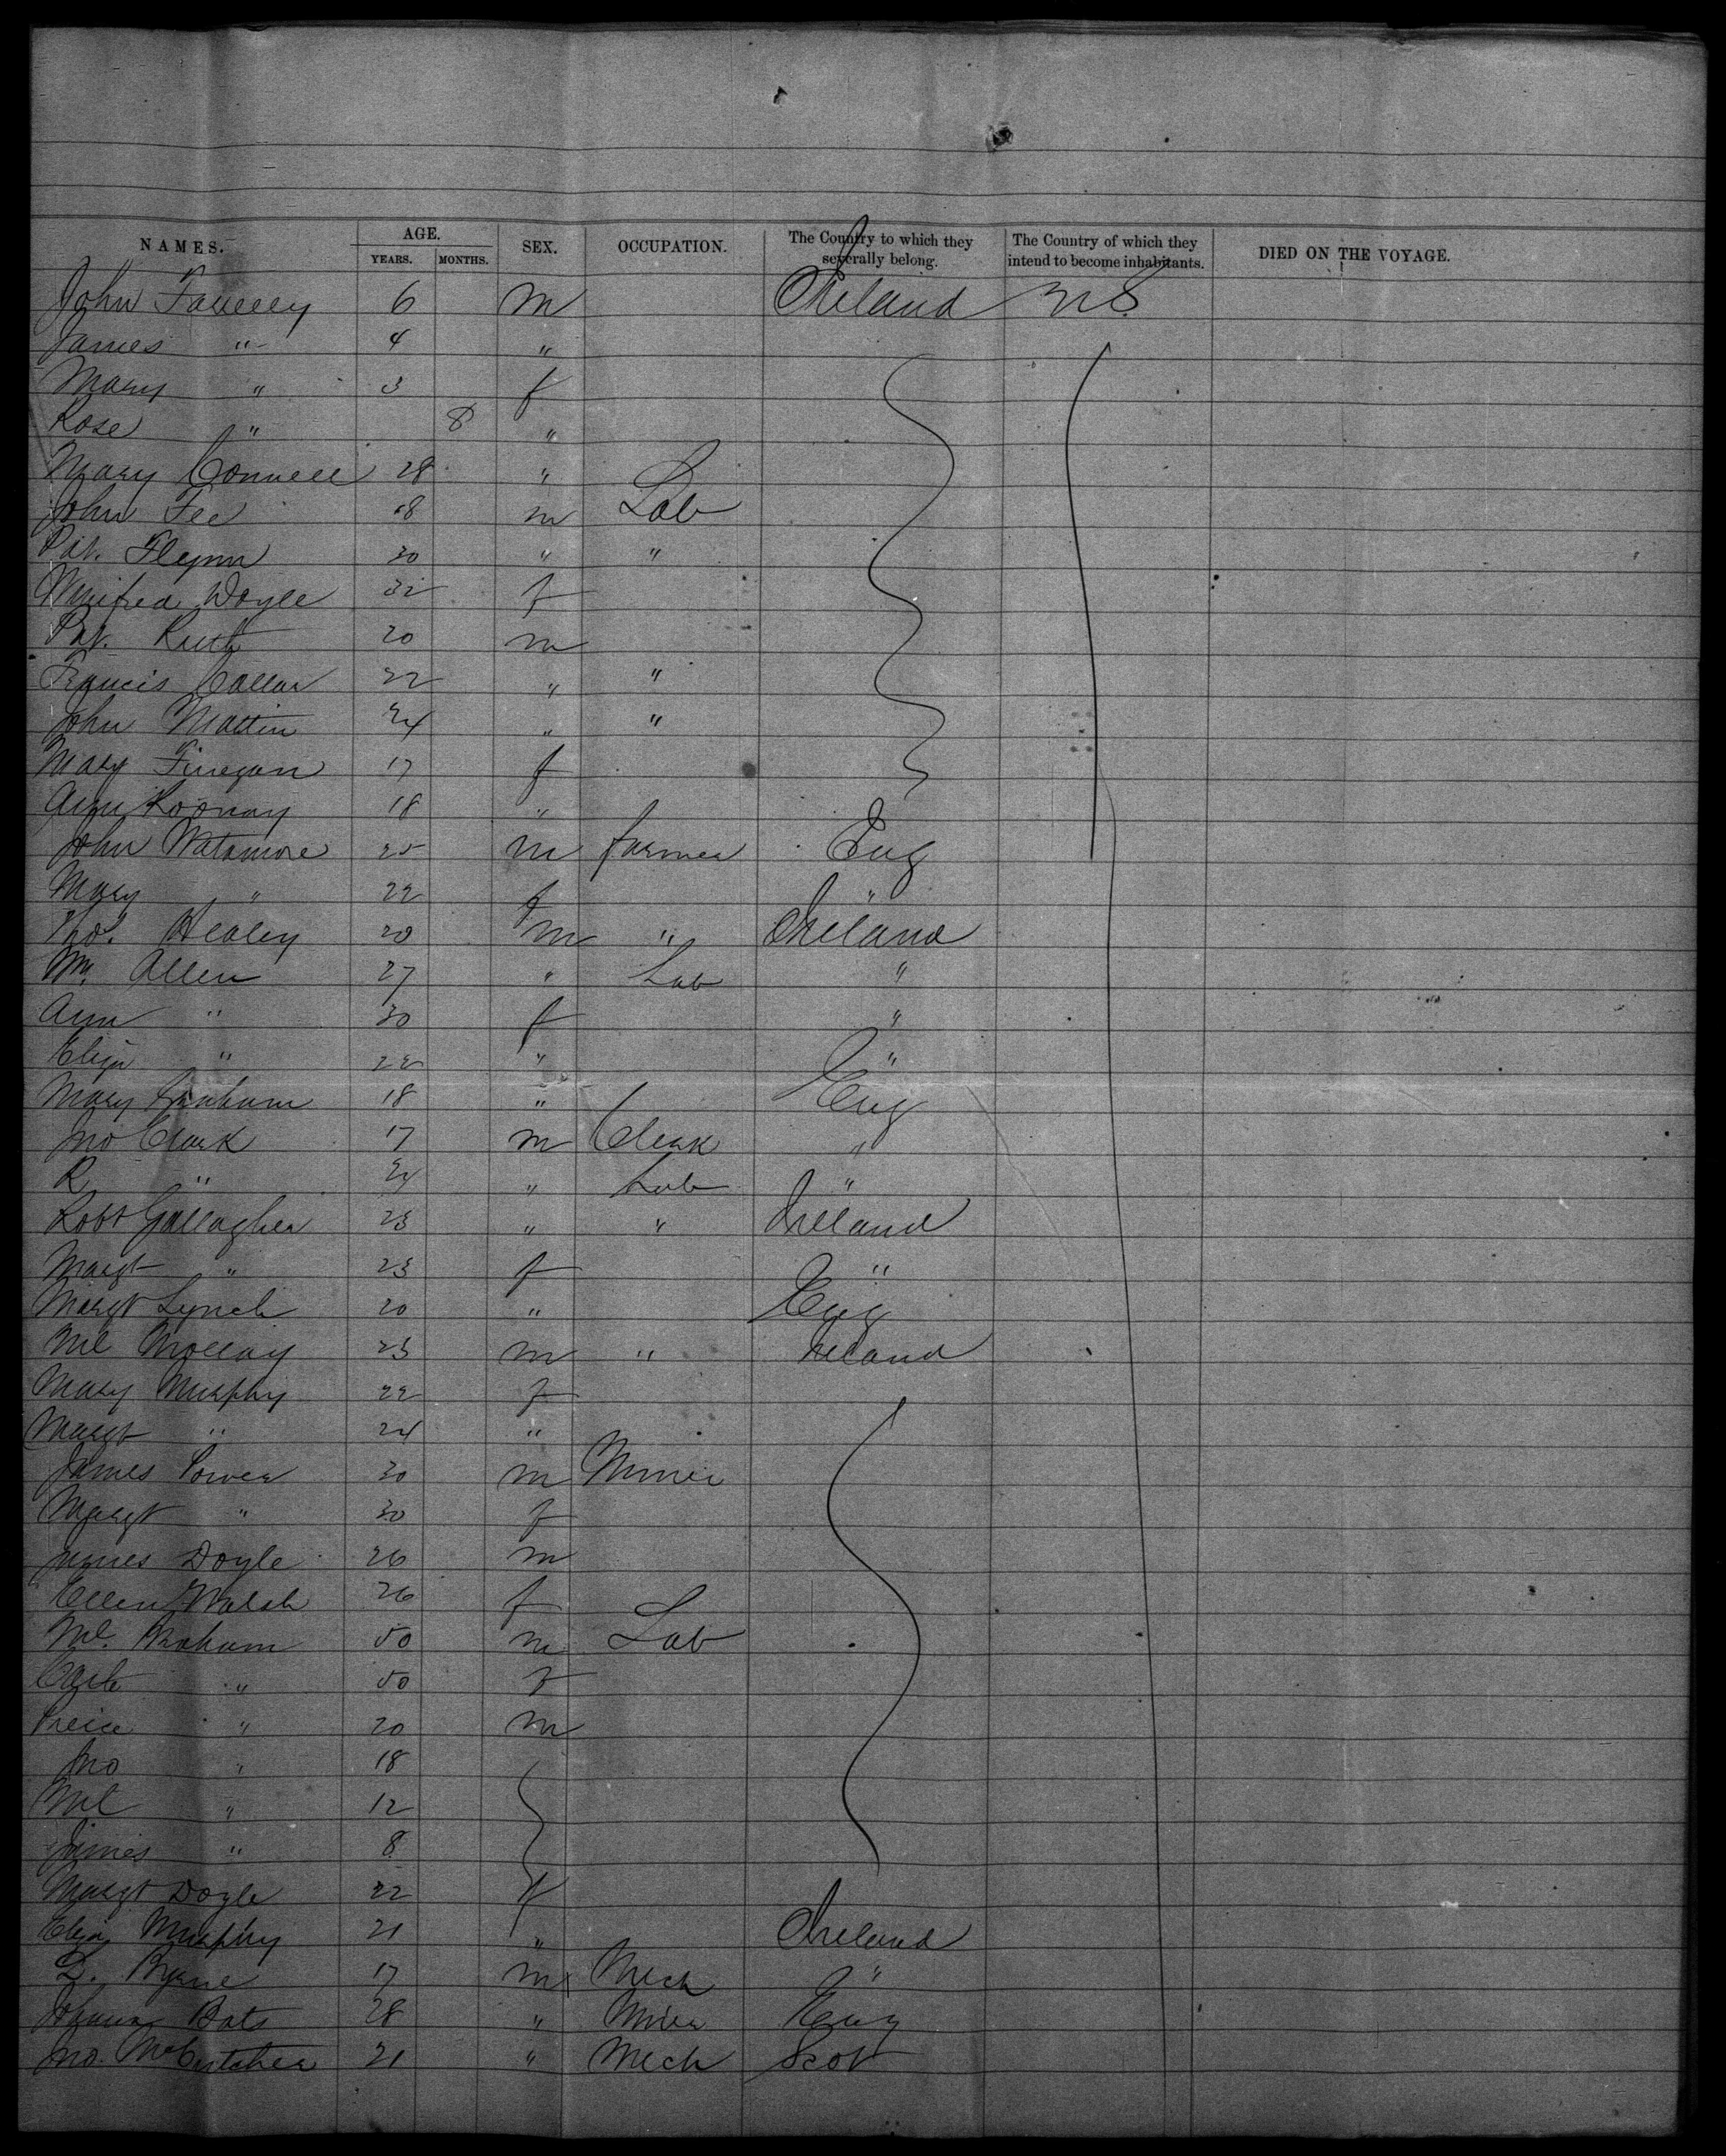 NAMES. AGE. SEX. OCCUPATION. The Country to which they severally belong. The Country of which they intend to become inhabitants. DIED ON THE VOYAGE.
YEARS. MONTHS.
John 6 m Ireland U S
James " 4 "
Mary " 3 f
Rose " 8 "
Mary Connell 28 "
John Fee 18 m Lab
Pat. Flynn 30 " "
Winifred Doyle 32 f
Pat. Ruth 20 m
Francis Callan 22 " "
John Martin 24 " "
Mary Finegan 17 f
Ann Roonay 18 "
John Watamore 25 m farmer Eng
Mary " 22 f "
Tho. Healey 20 m " Ireland
Wm. Allen 27 " Lab "
Ann " 30 f "
Eliza " 22 " "
Mary 18 " Eng
Jno Clark 17 m Clerk "
R " 24 " Lab "
Robt Gallagher 23 " " Ireland
Margt " 23 f "
Margt Lynch 20 " Eng
Ml Molloy 23 m " Ireland
Mary Murphy 22 f
Margt " 24 "
James Power 30 m Miner
Margt " 30 f
James Doyle 26 m
Ellen Walsh 26 f
Ml. 50 m Lab
Cath " 50 f
" 20 m
Jno " 18
Ml " 12
James " 8
Margt Doyle 22 f
Eliza Murphy 21 " Ireland
D. Byrne 17 m Mech "
Bats 28 " Miner Eng
Jno. McCutcher 21 " Mech Scot